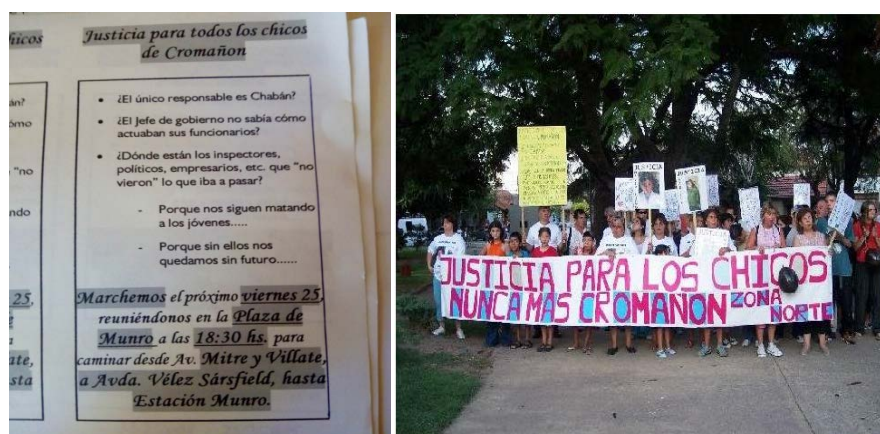 Justicia para todos los chicos
de Cromañon
• ¿El único responsable es Chabán?
• ¿El Jefe de gobierno no sabía cómo
actuaban sus funcionarios?
• ¿Dónde están los inspectores,
políticos, empresarios, etc. que “no
vieron” lo que iba a pasar?
- Porque nos siguen matando
a los jóvenes.....
- Porque sin ellos nos
quedamos sin futuro......
Marchemos el próximo viernes 25,
reuniéndonos en la Plaza de
Munro a las 18:30 hs. para
caminar desde Av. Mitre y Villate,
a Avda. Vélez Sársfield, hasta
Estación Munro.
JUSTICIA
JUSTICIA
JUSTICIA PARA LOS CHICOS
NUNCA MAS CROMAÑON ZONA
NORTE